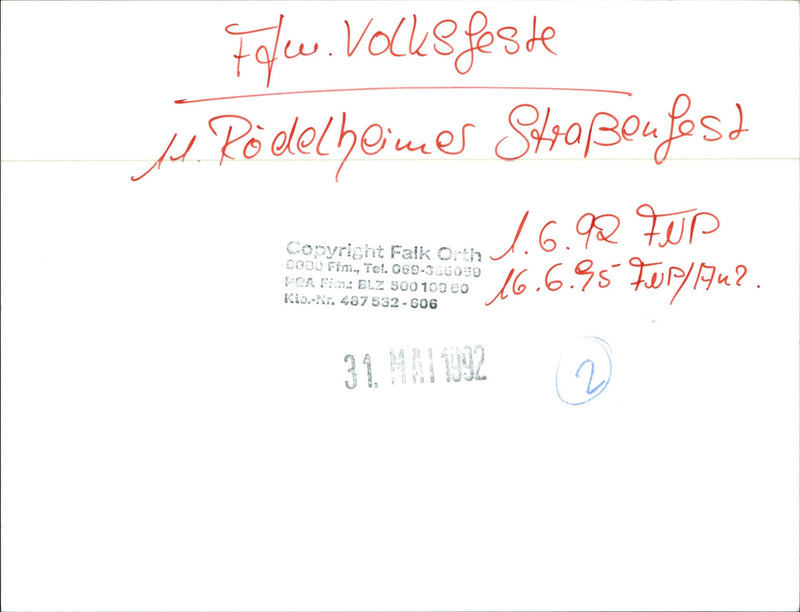 Ffm. Volksfeste
11. Rödelheimer Straßenfest
1.6.92 FNP
16.6.95 FNP/Anz.
Copyright Falk Orth
6000 Ffm., Tel. 069-
PGA Ffm.: BLZ 500 100 60
Kto.-Nr. 487 532 - 606
31. MAI 1992
2